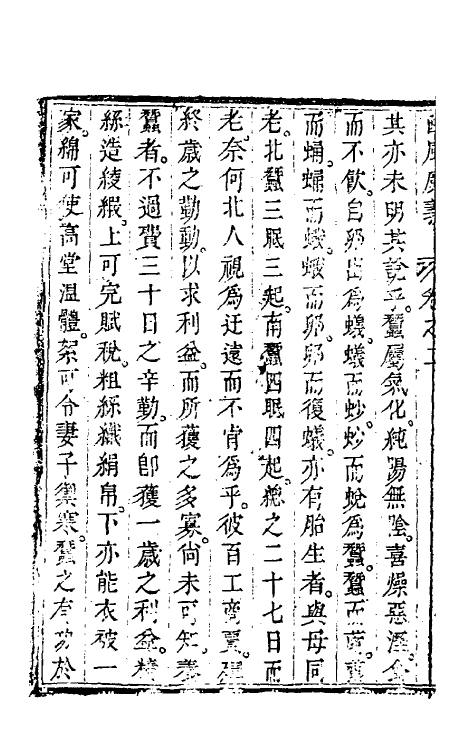 豳風廣義 卷之二
其亦未明其說乎蠶屬氣化純陽無陰喜燥惡溼食
而不飲自卵出為蟻蟻而蚴蚴而蛻為蠶蠶而繭繭
而蛹蛹而蛾蛾而卵卵而復蟻亦有胎生者與母同
老北蠶三眠三起南蠶四眠四起總之二十七日而
老奈何北人視為迂遠而不肯為乎彼百工商賈
終歲之勤動以求利益而所獲之多寡尚未可知養
蠶者不過費三十日之辛勤而即獲一歲之利益
絲造綾緞上可完賦稅粗絲織絹帛下亦能衣被一
家綿可使高堂溫體絮可令妻子禦寒蠶之有功於